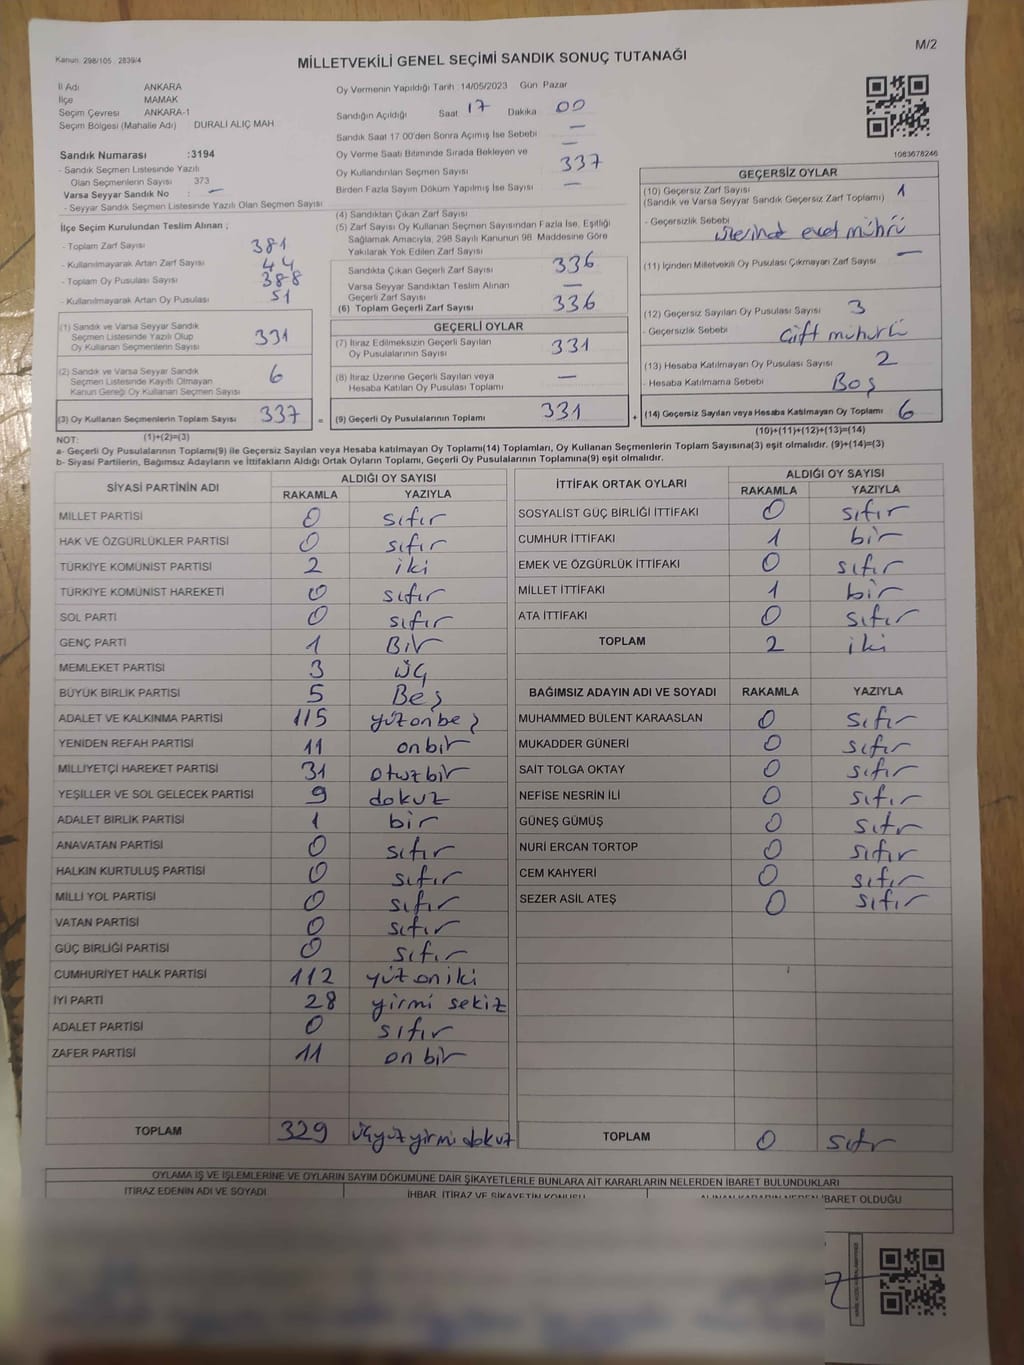 M/2
Kanun: 298/105 . 2839/4
MİLLETVEKİLİ GENEL SEÇİMİ SANDIK SONUÇ TUTANAĞI
İl Adı ANKARA
İlçe MAMAK
Seçim Çevresi ANKARA-1
Seçim Bölgesi (Mahalle Adı) DURALİ ALIÇ MAH
Sandık Numarası :3194
- Sandık Seçmen Listesinde Yazılı
Olan Seçmenlerin Sayısı 373
Varsa Seyyar Sandık No : —
- Seyyar Sandık Seçmen Listesinde Yazılı Olan Seçmen Sayısı
Oy Vermenin Yapıldığı Tarih :14/05/2023 Gün Pazar
Sandığın Açıldığı Saat 17 Dakika 00
Sandık Saat 17:00'den Sonra Açılmış İse Sebebi —
Oy Verme Saati Bitiminde Sırada Bekleyen ve —
Oy Kullandırılan Seçmen Sayısı 337
Birden Fazla Sayım Döküm Yapılmış İse Sayısı —
1083678246
İlçe Seçim Kurulundan Teslim Alınan ;
- Toplam Zarf Sayısı 381
- Kullanılmayarak Artan Zarf Sayısı 44
- Toplam Oy Pusulası Sayısı 388
- Kullanılmayarak Artan Oy Pusulası 51
(1) Sandık ve Varsa Seyyar Sandık
Seçmen Listesinde Yazılı Olup
Oy Kullanan Seçmenlerin Sayısı 331
(2) Sandık ve Varsa Seyyar Sandık
Seçmen Listesinde Kayıtlı Olmayan
Kanun Gereği Oy Kullanan Seçmen Sayısı 6
(3) Oy Kullanan Seçmenlerin Toplam Sayısı 337 =
(1)+(2)=(3)
(4) Sandıktan Çıkan Zarf Sayısı
(5) Zarf Sayısı Oy Kullanan Seçmen Sayısından Fazla İse, Eşitliği
Sağlamak Amacıyla, 298 Sayılı Kanunun 98. Maddesine Göre
Yakılarak Yok Edilen Zarf Sayısı
Sandıkta Çıkan Geçerli Zarf Sayısı 336
Varsa Seyyar Sandıktan Teslim Alınan
Geçerli Zarf Sayısı —
(6) Toplam Geçerli Zarf Sayısı 336
GEÇERLİ OYLAR
(7) İtiraz Edilmeksizin Geçerli Sayılan
Oy Pusulalarının Sayısı 331
(8) İtiraz Üzerine Geçerli Sayılan veya
Hesaba Katılan Oy Pusulası Toplamı —
(9) Geçerli Oy Pusulalarının Toplamı 331 +
GEÇERSİZ OYLAR
(10) Geçersiz Zarf Sayısı 1
(Sandık ve Varsa Seyyar Sandık Geçersiz Zarf Toplamı)
- Geçersizlik Sebebi üzerinde evet mührü
(11) İçinden Milletvekili Oy Pusulası Çıkmayan Zarf Sayısı —
(12) Geçersiz Sayılan Oy Pusulası Sayısı 3
- Geçersizlik Sebebi Çift mühürlü
(13) Hesaba Katılmayan Oy Pusulası Sayısı 2
- Hesaba Katılmama Sebebi Boş
(14) Geçersiz Sayılan veya Hesaba Katılmayan Oy Toplamı 6
(10)+(11)+(12)+(13)=(14)
NOT:
a- Geçerli Oy Pusulalarının Toplamı(9) ile Geçersiz Sayılan veya Hesaba katılmayan Oy Toplamı(14) Toplamları, Oy Kullanan Seçmenlerin Toplam Sayısına(3) eşit olmalıdır. (9)+(14)=(3)
b- Siyasi Partilerin, Bağımsız Adayların ve İttifakların Aldığı Ortak Oyların Toplamı, Geçerli Oy Pusulalarının Toplamına(9) eşit olmalıdır.
SİYASİ PARTİNİN ADI ALDIĞI OY SAYISI
RAKAMLA YAZIYLA
MİLLET PARTİSİ 0 sıfır
HAK VE ÖZGÜRLÜKLER PARTİSİ 0 sıfır
TÜRKİYE KOMÜNİST PARTİSİ 2 iki
TÜRKİYE KOMÜNİST HAREKETİ 0 sıfır
SOL PARTİ 0 sıfır
GENÇ PARTİ 1 Bir
MEMLEKET PARTİSİ 3 üç
BÜYÜK BİRLİK PARTİSİ 5 Beş
ADALET VE KALKINMA PARTİSİ 115 yüzonbeş
YENİDEN REFAH PARTİSİ 11 onbir
MİLLİYETÇİ HAREKET PARTİSİ 31 otuzbir
YEŞİLLER VE SOL GELECEK PARTİSİ 9 dokuz
ADALET BİRLİK PARTİSİ 1 bir
ANAVATAN PARTİSİ 0 sıfır
HALKIN KURTULUŞ PARTİSİ 0 sıfır
MİLLİ YOL PARTİSİ 0 sıfır
VATAN PARTİSİ 0 sıfır
GÜÇ BİRLİĞİ PARTİSİ 0 sıfır
CUMHURİYET HALK PARTİSİ 112 yüzoniki
İYİ PARTİ 28 yirmi sekiz
ADALET PARTİSİ 0 sıfır
ZAFER PARTİSİ 11 on bir
TOPLAM 329 üçyüzyirmidokuz
İTTİFAK ORTAK OYLARI ALDIĞI OY SAYISI
RAKAMLA YAZIYLA
SOSYALİST GÜÇ BİRLİĞİ İTTİFAKI 0 sıfır
CUMHUR İTTİFAKI 1 bir
EMEK VE ÖZGÜRLÜK İTTİFAKI 0 sıfır
MİLLET İTTİFAKI 1 bir
ATA İTTİFAKI 0 sıfır
TOPLAM 2 iki
BAĞIMSIZ ADAYIN ADI VE SOYADI RAKAMLA YAZIYLA
MUHAMMED BÜLENT KARAASLAN 0 sıfır
MUKADDER GÜNERİ 0 sıfır
SAİT TOLGA OKTAY 0 sıfır
NEFİSE NESRİN İLİ 0 sıfır
GÜNEŞ GÜMÜŞ 0 sıfır
NURİ ERCAN TORTOP 0 sıfır
CEM KAHYERİ 0 sıfır
SEZER ASİL ATEŞ 0 sıfır
TOPLAM 0 sıfır
OYLAMA İŞ VE İŞLEMLERİNE VE OYLARIN SAYIM DÖKÜMÜNE DAİR ŞİKAYETLERLE BUNLARA AİT KARARLARIN NELERDEN İBARET BULUNDUKLARI
İTİRAZ EDENİN ADI VE SOYADI İHBAR, İTİRAZ VE ŞİKAYETİN KONUSU ALINAN KARARIN NEDEN İBARET OLDUĞU